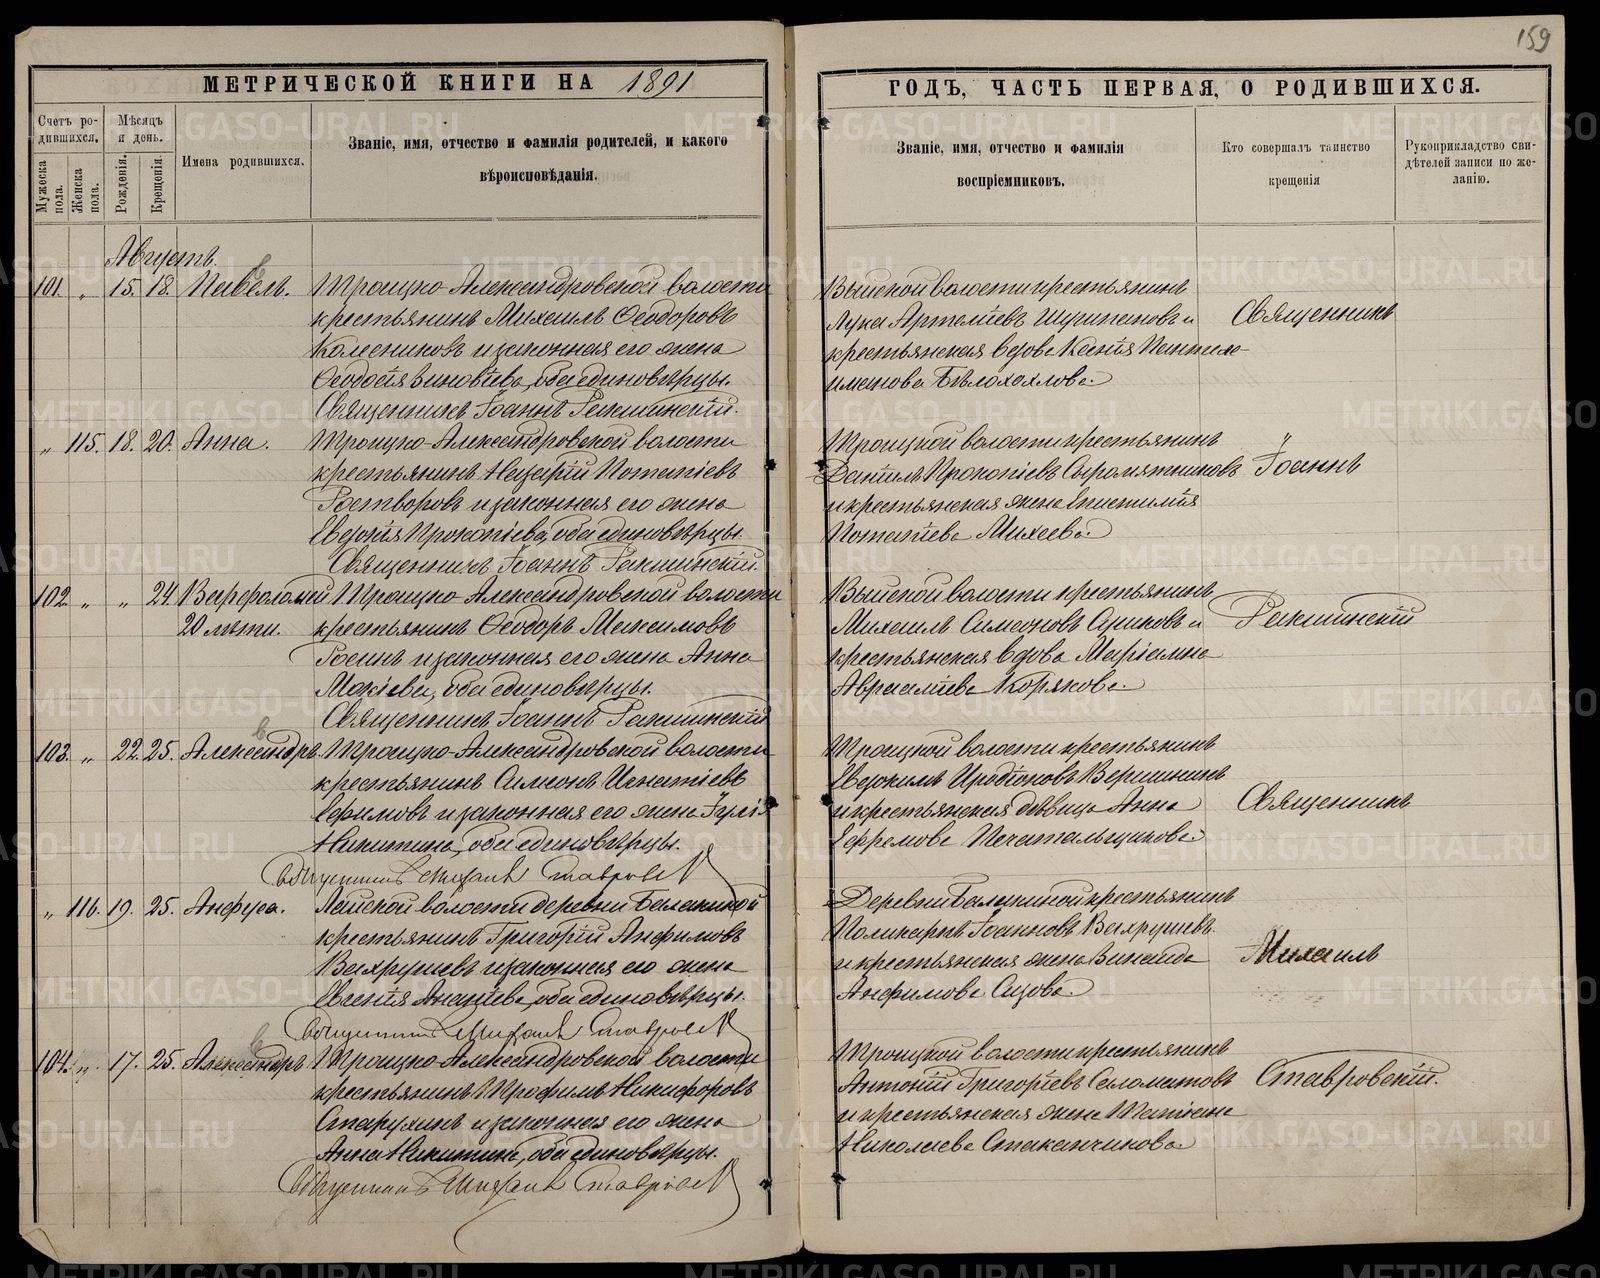 159
МЕТРИЧЕСКОЙ КНИГИ НА 1891
ГОДЪ, ЧАСТЬ ПЕРВАЯ, О РОДИВШИХСЯ.
Счетъ ро-
дившихся.
Мужеска
пола.
Женска
пола.
Мѣсяцъ
и день.
Рожденія.
Крещенія.
Имена родившихся.
Званіе, имя, отчество и фамилія родителей, и какого
вѣроисповѣданія.
Званіе, имя, отчество и фамилія
воспріемниковъ.
Кто совершалъ таинство
крещенія
Рукоприкладство сви-
дѣтелей записи по же-
ланію.
Августъ.
101. „ 15. 18. Павелъ.
Троицко-Александровской волости
крестьянинъ Михаилъ Ѳеодоровъ
Колесниковъ и законная его жена
Ѳеодосія Зиновіева, оба единовѣрцы.
Священникъ Іоаннъ Ракшинскій.
Выйской волости крестьянинъ
Лука Артеміевъ и
крестьянская вдова Ксенія Пантеле-
имонова Бѣлохохлова.
Священникъ
„ 115. 18. 20. Анна.
Троицко-Александровской волости
крестьянинъ Назарій Потапіевъ
Растворовъ и законная его жена
Евдокія Прокопіева, оба единовѣрцы.
Священникъ Іоаннъ Ракшинскій.
Троицкой волости крестьянинъ
Даніилъ Прокопіевъ Сыромятниковъ
и крестьянская жена Епистимія
Потапіева Михеева.
„
Іоаннъ
102. „ „ 24. Варфоломей
20 лѣтъ.
Троицко-Александровской волости
крестьянинъ Ѳеодоръ Максимовъ
и законная его жена Анна
Мокіева, оба единовѣрцы.
Священникъ Іоаннъ Ракшинскій
Выйской волости крестьянинъ
Михаилъ Симеоновъ и
крестьянская вдова Маріамна
Авраамiева Корякова.
Ракшинскій
103. „ 22. 25. Александръ.
Троицко-Александровской волости
крестьянинъ Симеонъ Игнатіевъ
Ефимовъ и законная его жена Іулія
Никитина, оба единовѣрцы.
Священникъ Михаилъ Ставровскій
Троицкой волости крестьянинъ
Евдокимъ Иродіоновъ Вершининъ
и крестьянская дѣвица Анна
Ефремова Печатальщикова.
Священникъ
„ 116. 19. 25. Анфуса.
Лайской волости деревни Балакиной
крестьянинъ Григорій Анфимовъ
Вахрушевъ и законная его жена
Евгенія Ананіева, оба единовѣрцы.
Священникъ Михаилъ Ставровскій
Деревни Балакиной крестьянинъ
Поликарпъ Іоанновъ Вахрушевъ
и крестьянская жена Зинаида
Анфимова Сизова.
Михаилъ
104. „ 17. 25. Александръ
Троицко-Александровской волости
крестьянинъ Трофимъ Никифоровъ
Старухинъ и законная его жена
Анна Никитина, оба единовѣрцы.
Священникъ Михаилъ Ставровскій
Троицкой волости крестьянинъ
Антоній Григоріевъ Саломатовъ
и крестьянская жена Татіана
Николаева Стаканчикова.
Ставровскій.